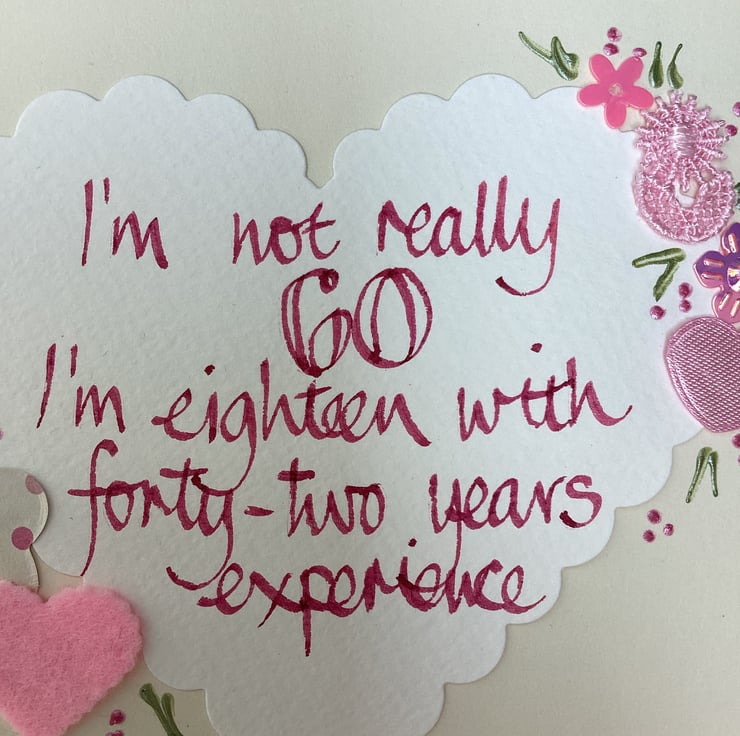 I'm not really
60
I'm eighteen with
forty-two years
experience